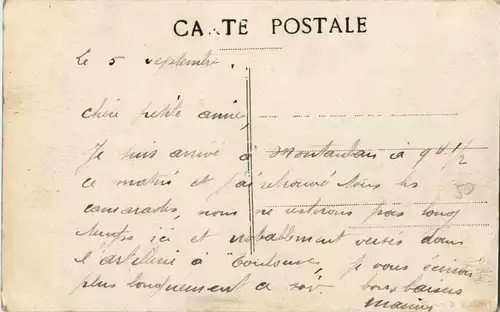 CARTE POSTALE
Le 5 septembre.
chère petite amie,
Je suis arrivé à Montauban à 9 H 1/2
ce matin et j'ai retrouvé tous les
camarades, nous ne resterons pas long
temps ici et probablement versés dans
l'artillerie à Toulouse, je vous écrirai
plus longuement ce soir. bons baisers
Marius
50